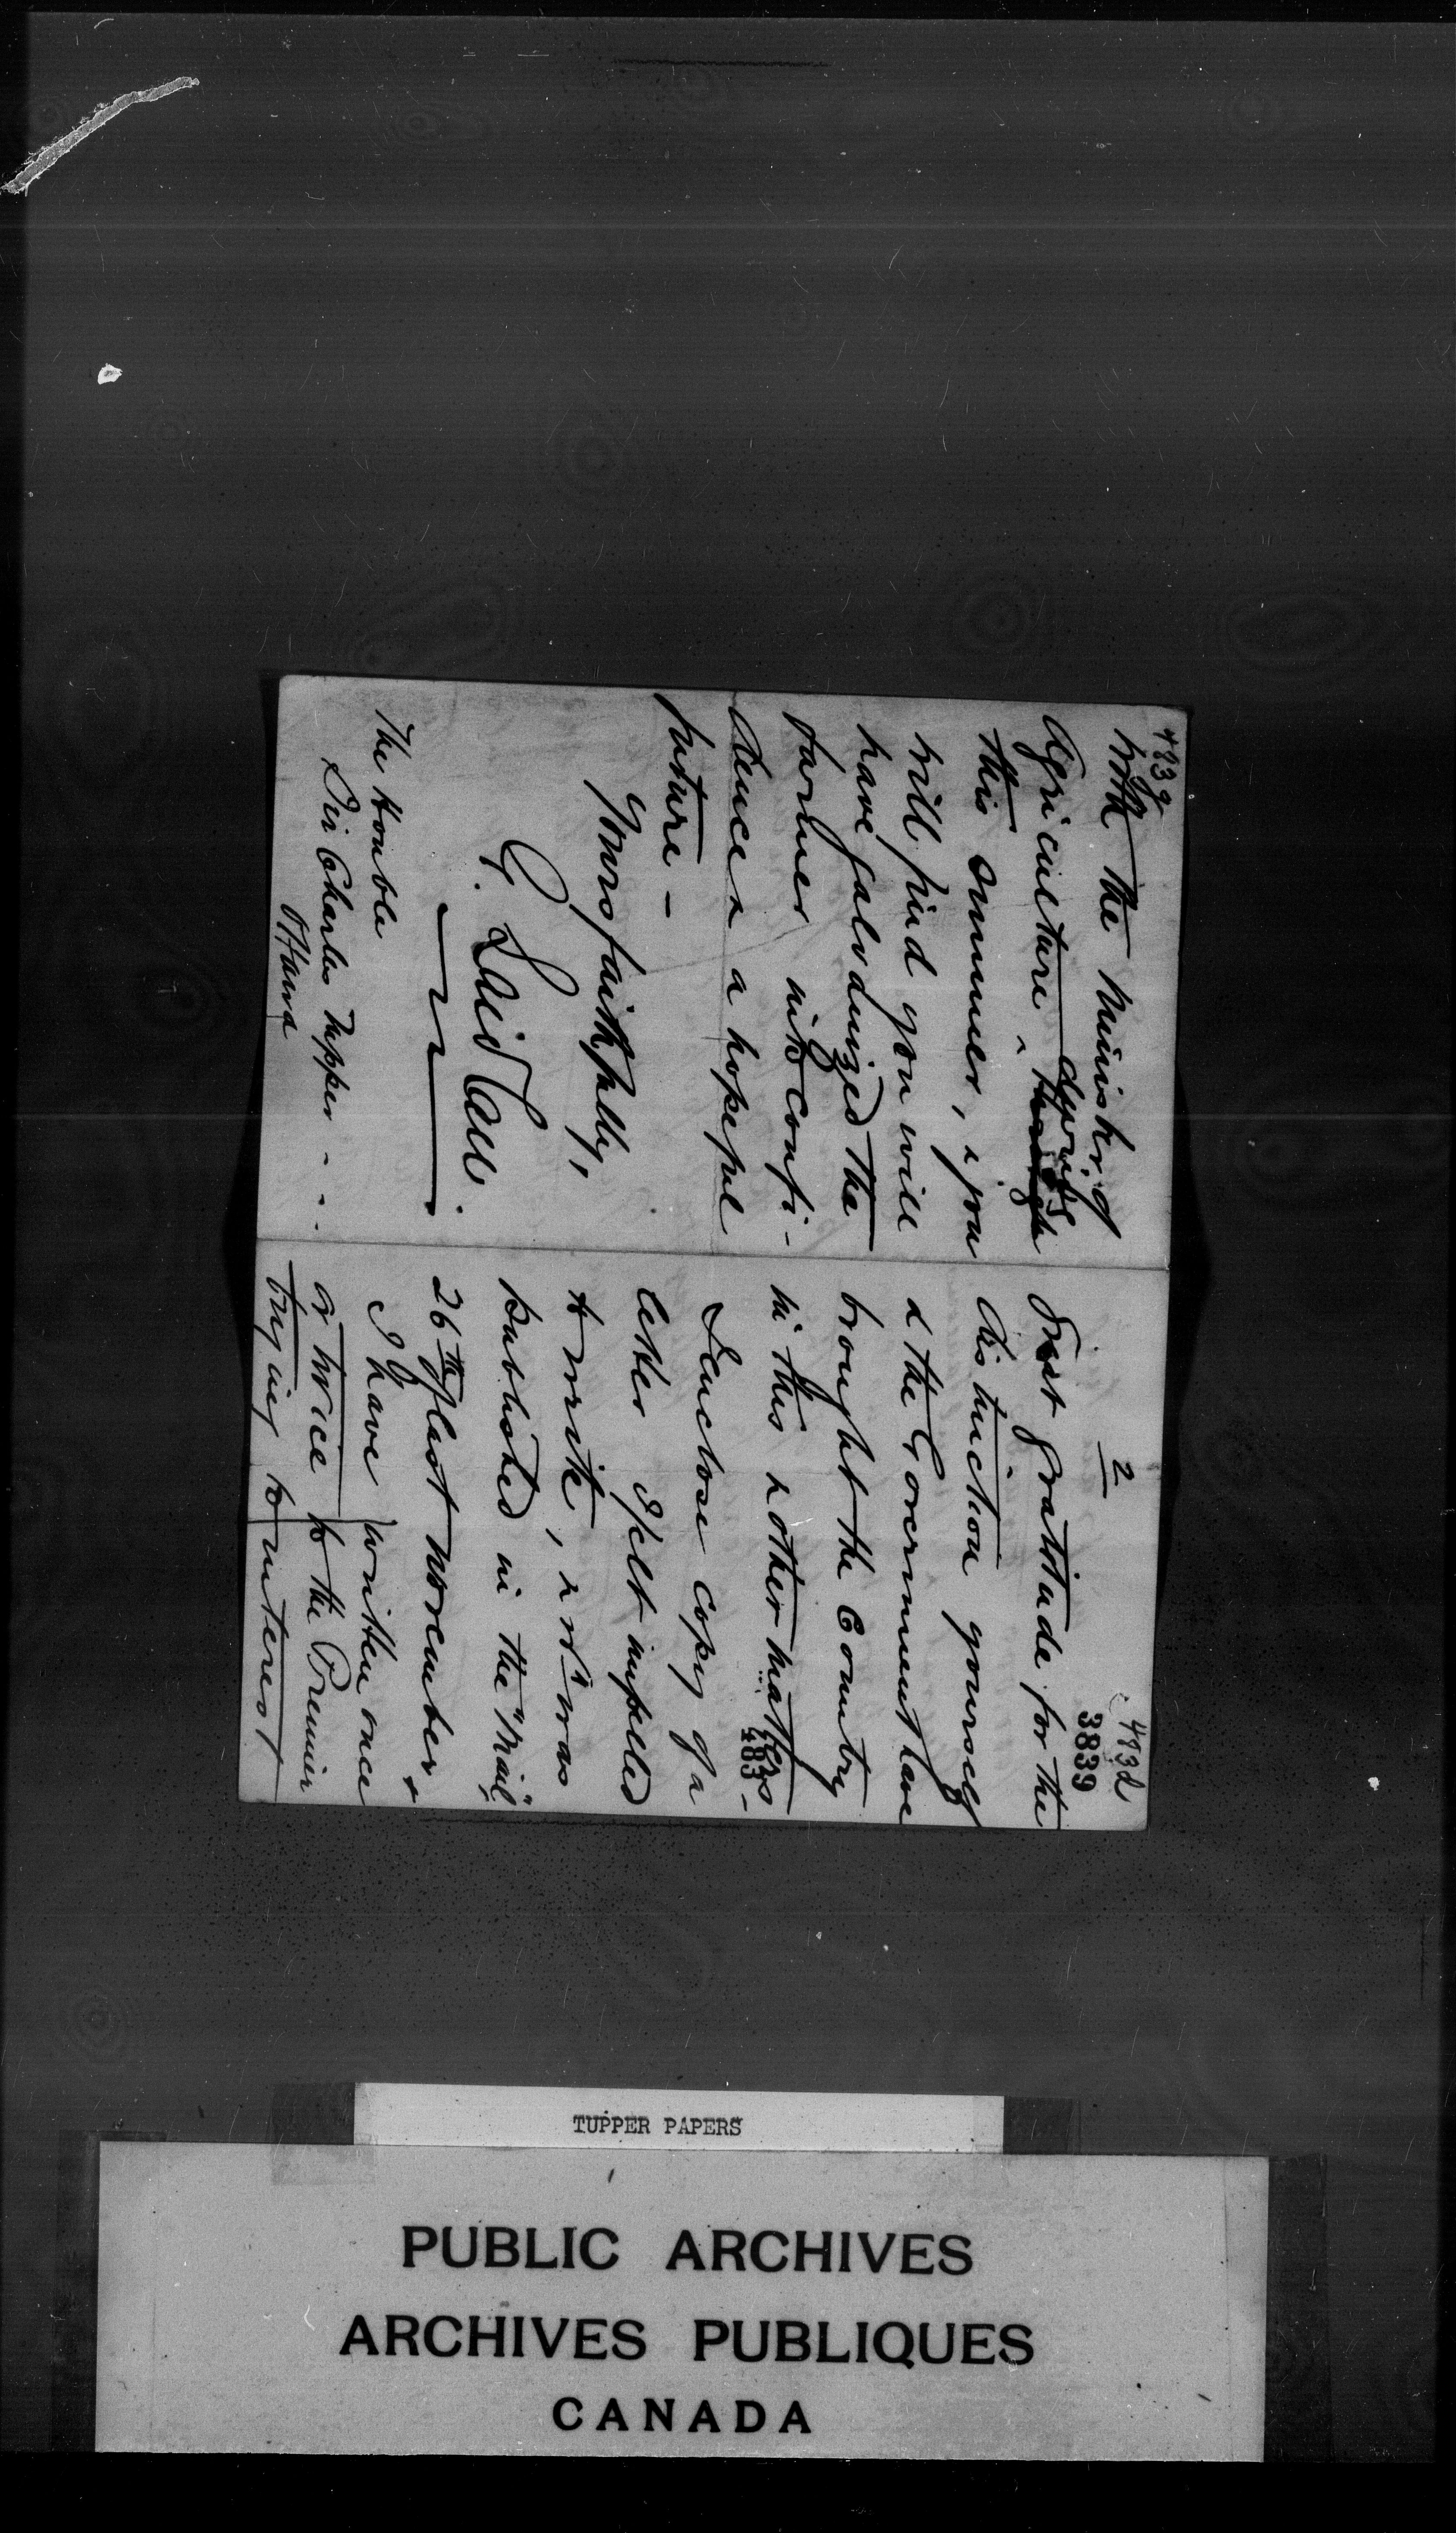 483g
with the Minister of
Agriculture ^ during through
this summer, & you
will find you will
have galvanized the
farmer into confi-
dence & a hopeful
future -
Yours faithfully,
G. Laidlaw.
The Honble
Sir Charles Tupper - - -
Ottawa
2
483d
3839
Just gratitude for the
distinction yourself
& the Government have
brought the Country
in this & other matters -
483
I enclose copy of a
letter I felt impelled
to write, & wh was
published in the "Mail"
26th of last November &
I have written once
or twice to the Premier
trying to interest
TUPPER PAPERS
PUBLIC ARCHIVES
ARCHIVES PUBLIQUES
CANADA